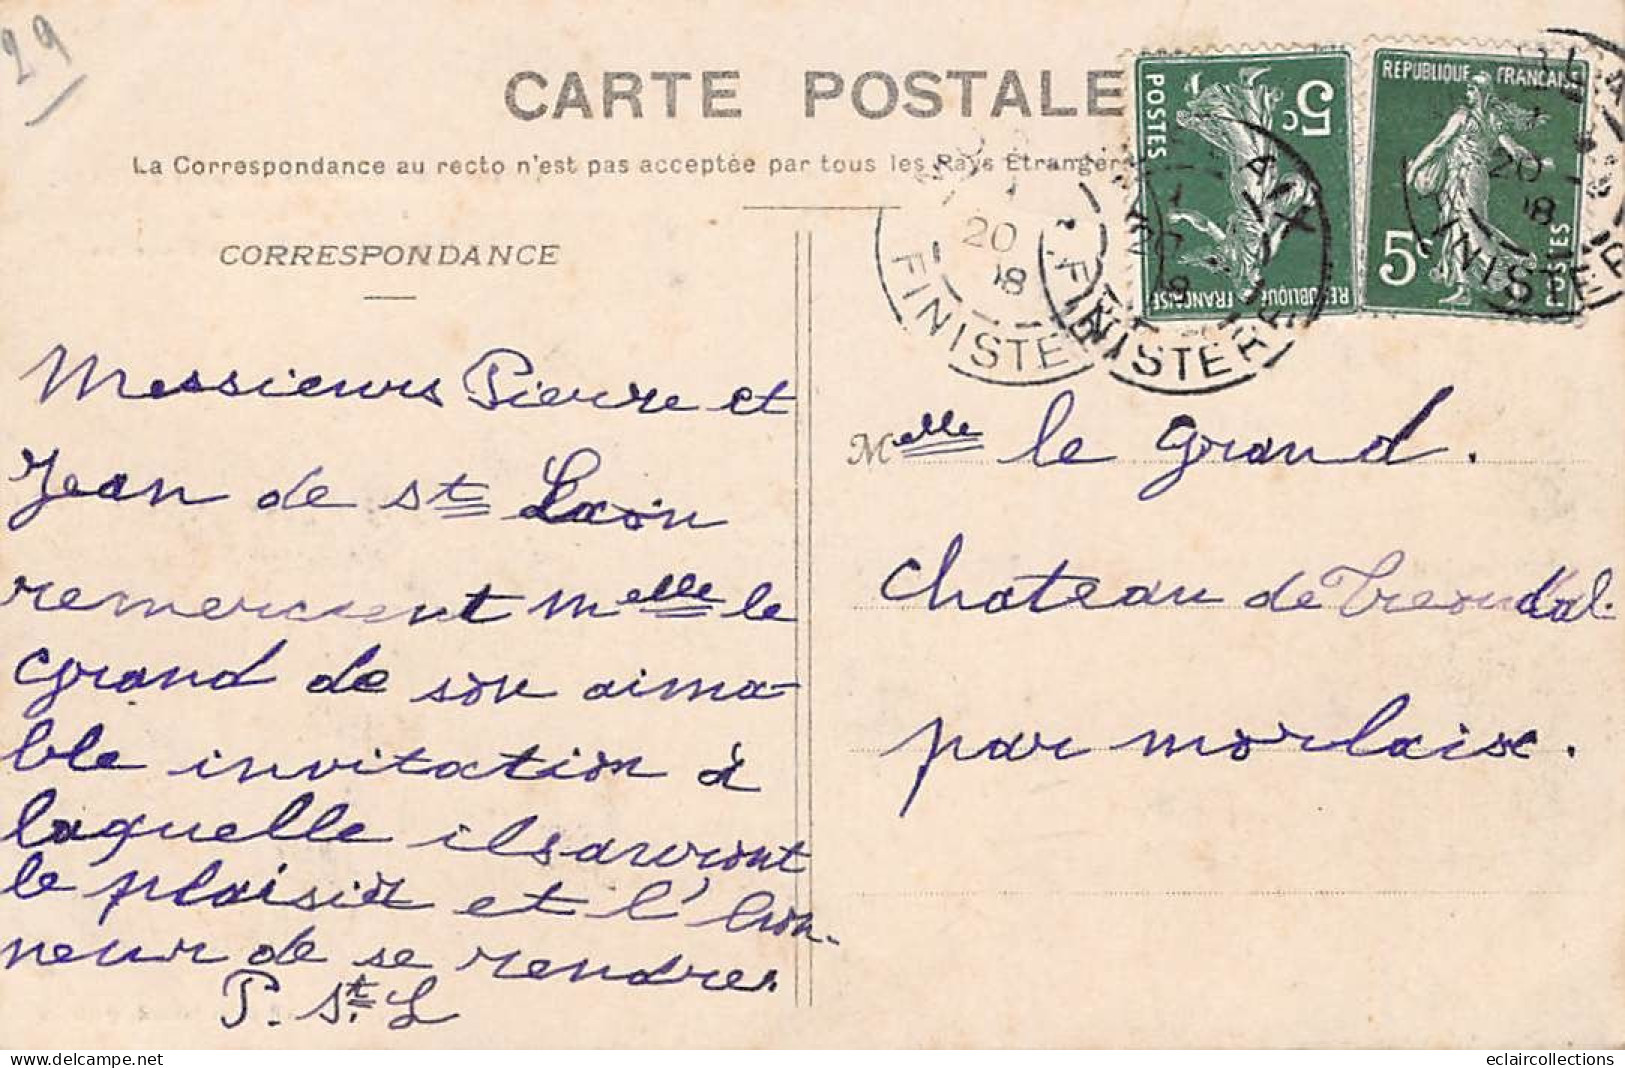 29
CARTE POSTALE
La Correspondance au recto n'est pas acceptée par tous les Pays Etrangers
CORRESPONDANCE
POSTES
5c
RÉPUBLIQUE FRANÇAISE
RÉPUBLIQUE FRANÇAISE
5c
POSTES
20
18
FINISTERE
AIX
FINISTERE
20
18
FINISTERE
Messieurs Pierre et
Jean de St Laon
remercient Melle le
grand de son aima-
ble invitation à
laquelle ils auront
le plaisir et l'hon-
neur de se rendre.
P. St. L
Melle le Grand.
Chateau de
par Morlaix.
eclaircollections